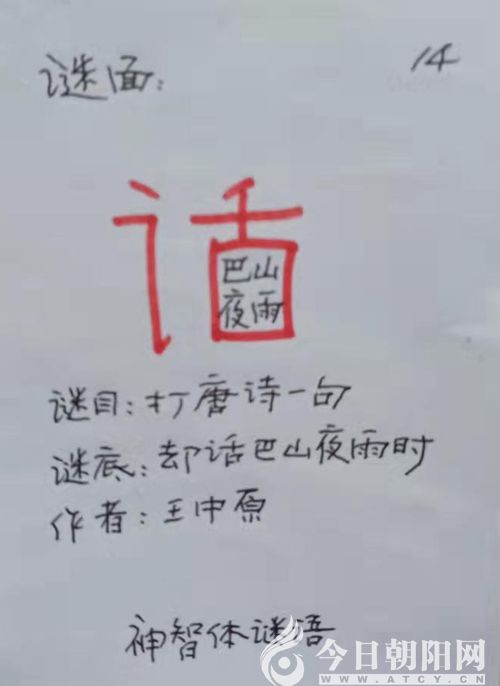 谜面： 14
话
巴山
夜雨
谜目：打唐诗一句
谜底：却话巴山夜雨时
作者：王中原
神智体谜语
今日朝阳网
WWW.ATCY.CN